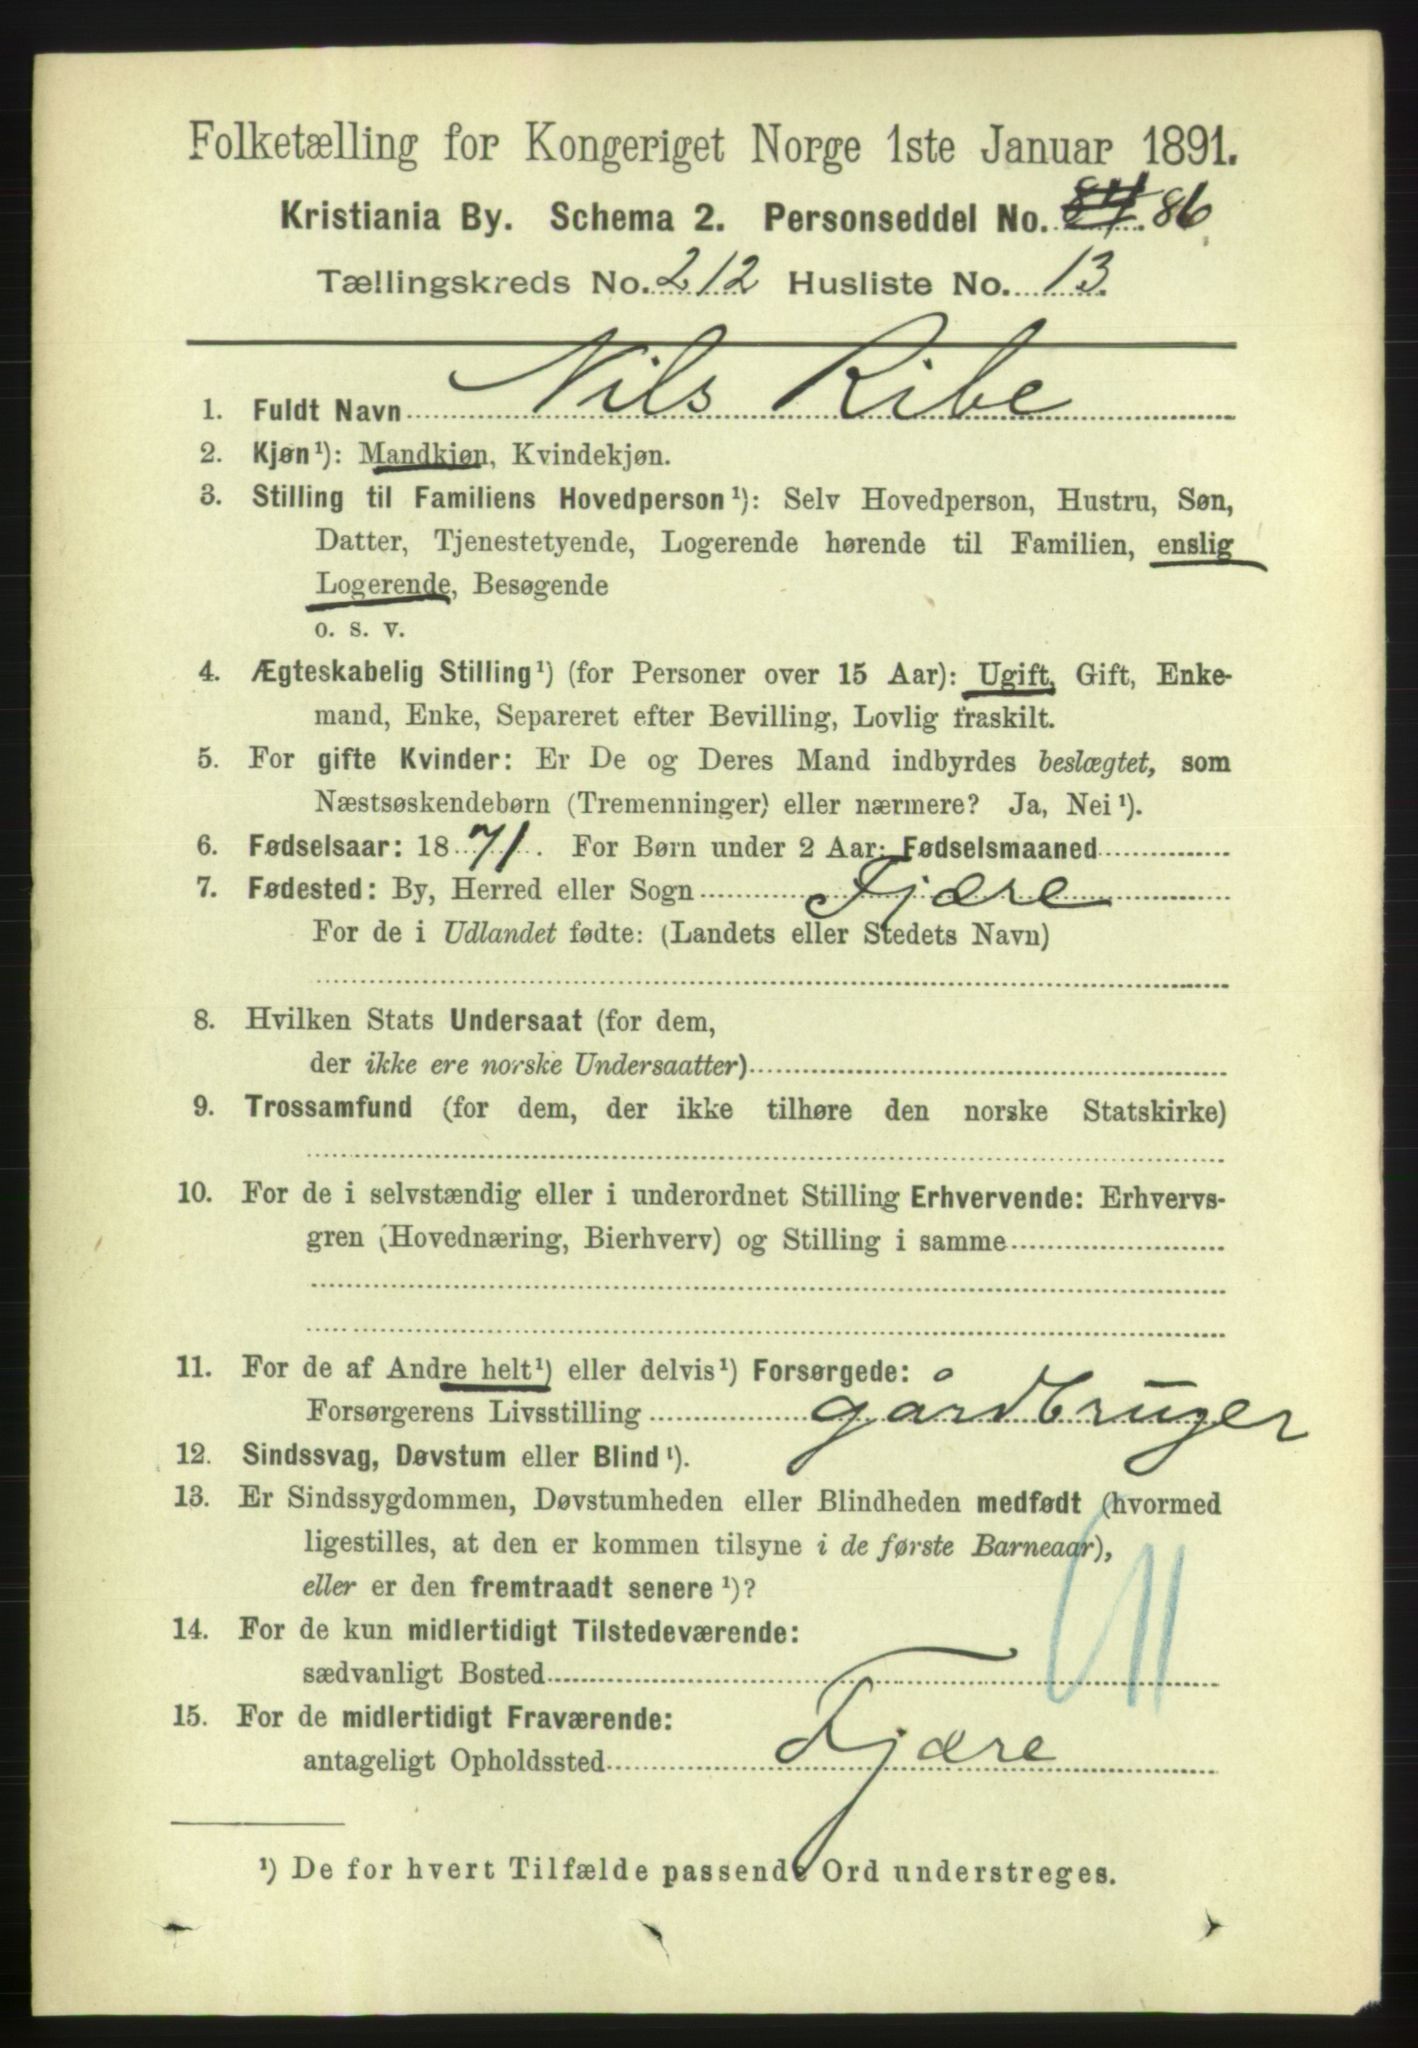 Folketælling for Kongeriget Norge 1ste Januar 1891.
Kristiania By. Schema 2. Personseddel No. 84 86
Tællingskreds No. 212 Husliste No. 13.
1. Fuldt Navn Nils Ribe
2. Kjøn¹): Mandkjøn, Kvindekjøn.
3. Stilling til Familiens Hovedperson¹): Selv Hovedperson, Hustru, Søn,
Datter, Tjenestetyende, Logerende hørende til Familien, enslig
Logerende, Besøgende
o. s. v.
4. Ægteskabelig Stilling¹) (for Personer over 15 Aar): Ugift, Gift, Enke-
mand, Enke, Separeret efter Bevilling, Lovlig fraskilt.
5. For gifte Kvinder: Er De og Deres Mand indbyrdes beslægtet, som
Næstsøskendebørn (Tremenninger) eller nærmere? Ja, Nei¹).
6. Fødselsaar: 1871. For Børn under 2 Aar: Fødselsmaaned
7. Fødested: By, Herred eller Sogn Fjære
For de i Udlandet fødte: (Landets eller Stedets Navn)
8. Hvilken Stats Undersaat (for dem,
der ikke ere norske Undersaatter)
9. Trossamfund (for dem, der ikke tilhøre den norske Statskirke)
10. For de i selvstændig eller i underordnet Stilling Erhvervende: Erhvervs-
gren (Hovednæring, Bierhverv) og Stilling i samme
11. For de af Andre helt¹) eller delvis¹) Forsørgede:
Forsørgerens Livsstilling gårdbruger
12. Sindssvag, Døvstum eller Blind¹).
13. Er Sindssygdommen, Døvstumheden eller Blindheden medfødt (hvormed
ligestilles, at den er kommen tilsyne i de første Barneaar),
eller er den fremtraadt senere¹)?
14. For de kun midlertidigt Tilstedeværende:
sædvanligt Bosted
15. For de midlertidigt Fraværende:
antageligt Opholdssted Fjære
¹) De for hvert Tilfælde passende Ord understreges.